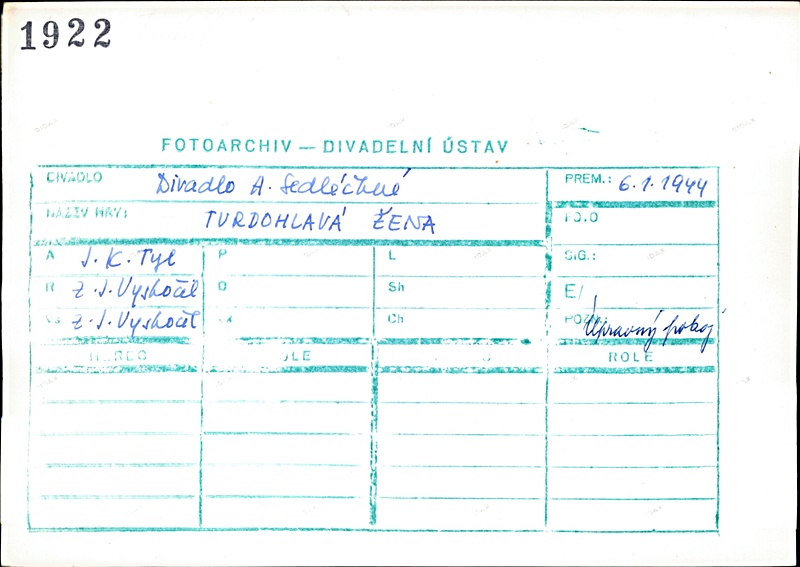 1922
FOTOARCHIV — DIVADELNÍ ÚSTAV
DIVADLO Divadlo A. Sedláčkové PREM.: 6.1.1944
NÁZEV HRY: TVRDOHLAVÁ ŽENA FO.O
A J. K. Tyl P L SIG.:
R Z. J. Vyskočil O Sh E/
Vs Z. J. Vyskočil Ch POZN. Upravný pokoj
HEREC ROLE ROLE